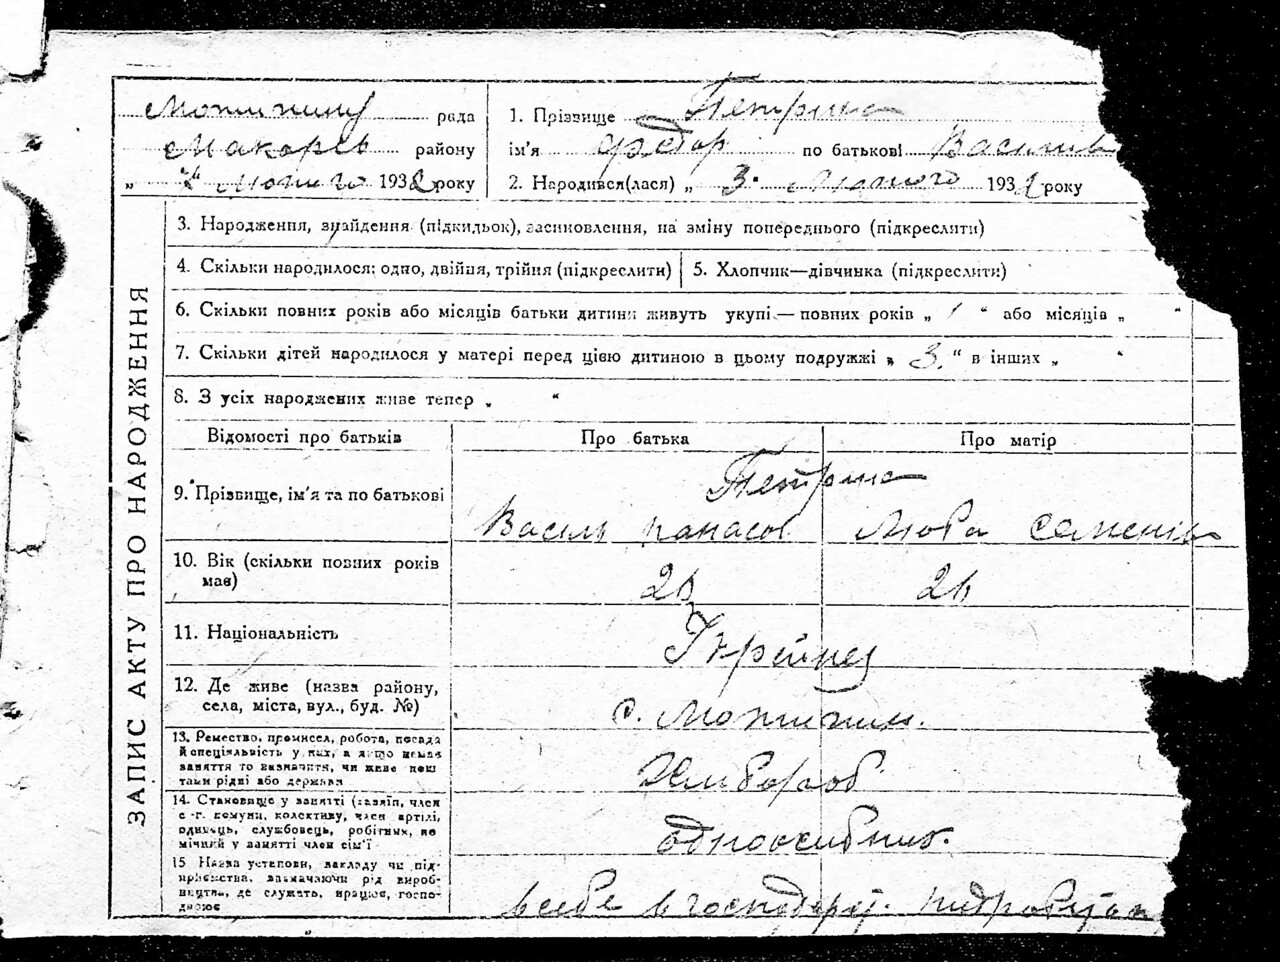 Мотижину рада
Макарів району
„ " Лютого 1932 року
1. Прізвище Петрина
ім'я Федор по батькові Василів
2. Народився(лася) „ 3. Лютого 1932 року
ЗАПИС АКТУ ПРО НАРОДЖЕННЯ
3. Народження, знайдення (підкидьок), засиновлення, на зміну попереднього (підкреслити)
4. Скільки народилося: одно, двійня, трійня (підкреслити)
5. Хлопчик—дівчинка (підкреслити)
6. Скільки повних років або місяців батьки дитини живуть укупі — повних років „ " або місяців „ "
7. Скільки дітей народилося у матері перед цією дитиною в цьому подружжі „ 3. " в інших „ "
8. З усіх народжених живе тепер „ "
Відомості про батьків Про батька Про матір
9. Прізвище, ім'я та по батькові
Петрина
Василь Панасов Люба Семенів
10. Вік (скільки повних років
має)
26 26
11. Національність
Українец
12. Де живе (назва району,
села, міста, вул., буд. №)
с. Мотижин.
13. Ремество, промисел, робота, посада
й спеціяльність у них, а якщо немає
заняття то визначити, чи живе кош
тами рідні або держави
Хлібороб
14. Становище у занятті (хазяїн, член
с.-г. комуни, колективу, член артілі,
одинець, службовець, робітник, по
мічний у занятті член сім'ї
одноосібник.
15 Назва установи, закладу чи під-
приємства, зазначаючи рід вироб-
ництва, де служать, працює, госпо-
дарює
в себе в господарс.